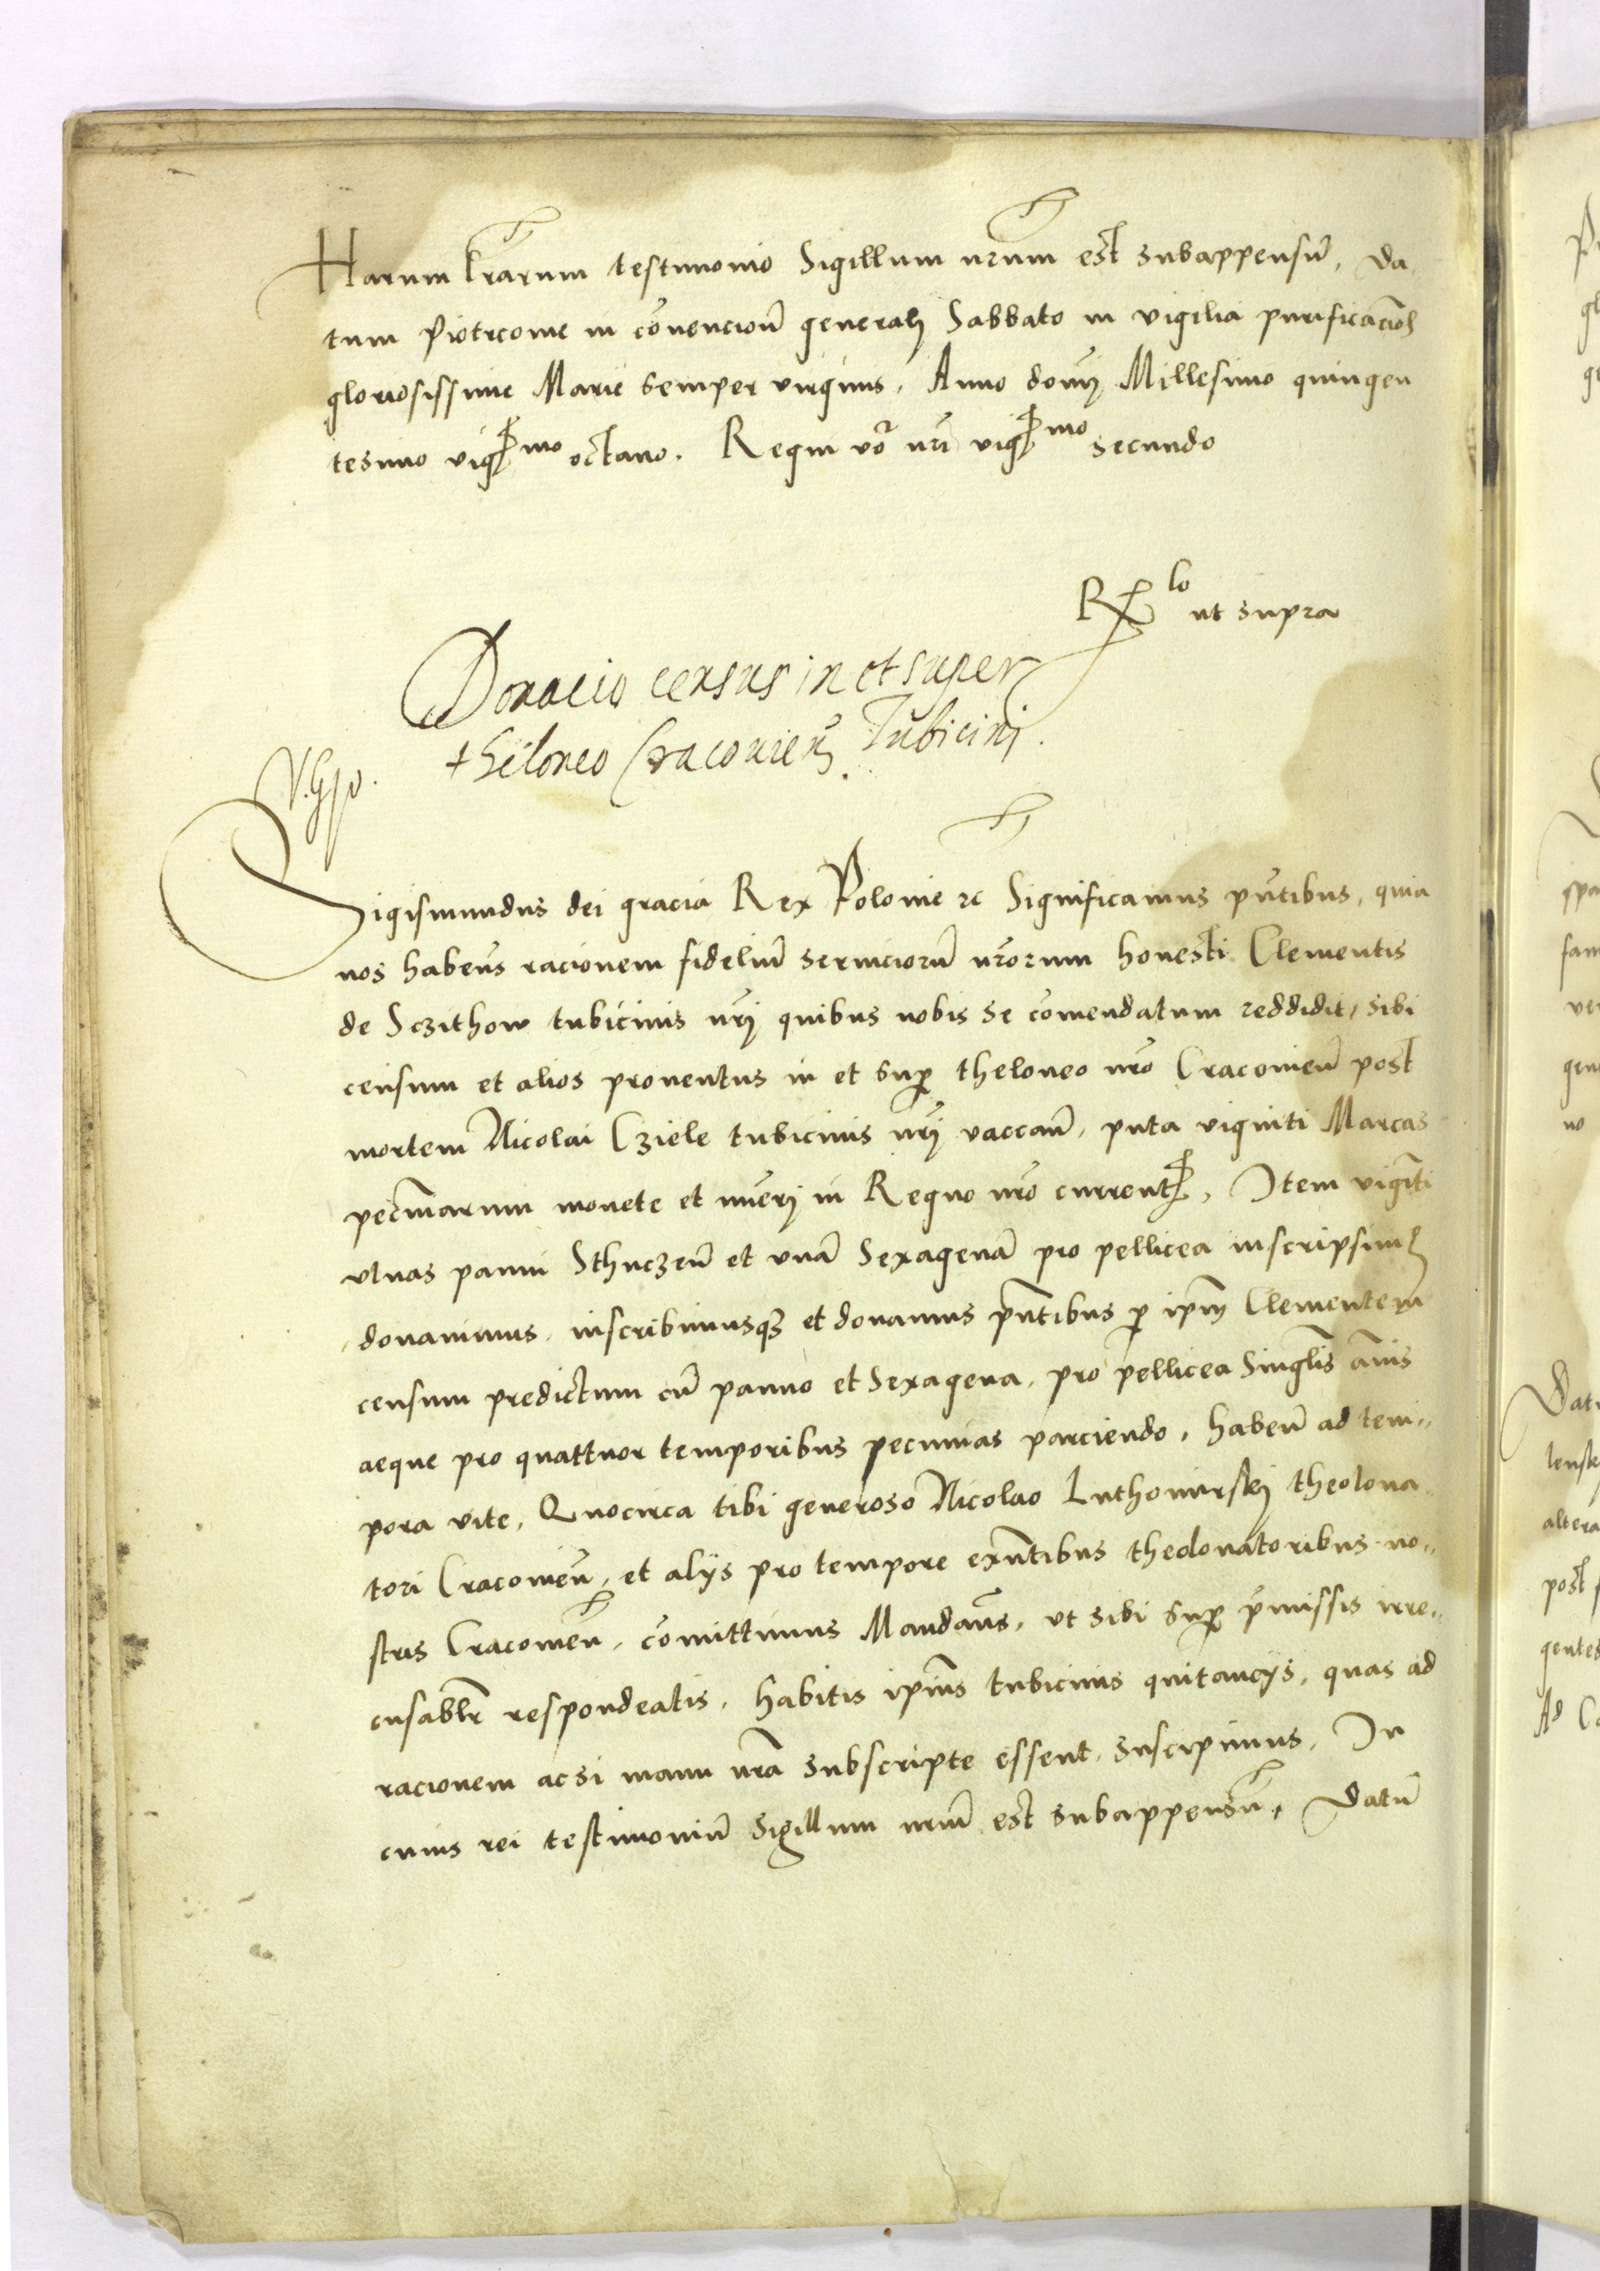 Harum lrarum testimonio Sigillum nrum est subappensũ, Da
tum Piotrcouie in cõuencioñ generali Sabbato in vigilia purificaciois
gloriosissime Marie semper virginis, Anno domĩ Millesimo quingen
tesimo vigmo octauo. Regni vo nri vigmo secundo
Rlo ut supra
Donacio census in et super
theloneo Cracouieñ Tubicini.
Sigismundus dei gracia Rex Polonie zc Significamus pñtibus, quia
nos habeñs racionem fideliũ seruiciorũ nrorum honesti Clementis
de Sczithow tubicinis nrj quibus nobis se cõmendatum reddidit, sibi
censum et alios prouentus in et sup theloneo nro Cracouieñ post
mortem Nicolai Cziele tubicinis nrj vaccañ, puta viginti Marcas
pecũiarum monete et nũerj in Regno nro current, Item vigiñti
vlnas panni Sthuczeñ et vnã Sexagenã pro pellicea inscripsim9
donauimus, inscribimusq3 et donamus pñtibus p ipm Clementem
censum predictum cũ panno et sexagena, pro pellicea singlis añis
aeque pro quattuor temporibus pecunias parciendo, habeñ ad tem-
pora vite, Quocirca tibi generoso Nicolao Luthomirskj theolona
tori Cracouieñ, et alijs pro tempore exñtibus theolonatoribus no-
stris Cracouieñ, cõmittimus Mandañs, vt sibi sup pmissis irre-
cusablr respondeatis, habitis ipius tubicinis quitancijs, quas ad
racionem acsi manu nra subscripte essent, suscipimus, In
cuius rei testimoniũ Sigillum nrũm est subappensũ, Datũ